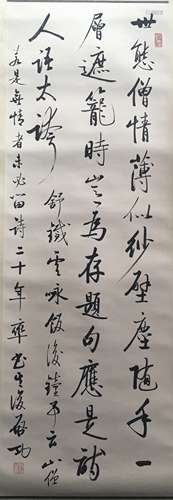 世態僧情薄似紗壁塵隨手一
層遮籠時豈為存題句應是詩
人語太誇 舒鐵雲咏飯後鐘事云山僧
若是無情者未必留詩二十年 率書其後 啟功